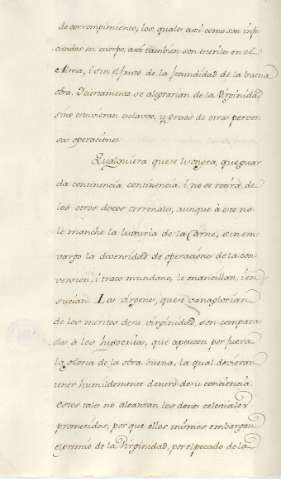 de corrompimiento, los quales asi como son infe
cundos en cuerpo, asi tambien son esteriles en el
Alma, i sin el fruto de la fecundidad de la buena
obra. Justamente se alegrarian de la Virginidad
sino estuvieran esclavos, y presos de otras perver
sas operaciones
Qualquiera que se lisongea, que guar
da continencia, i no se retira de
los otros docos terrenales, aunque à este no
le manche la luxuria de la Carne, sin em
vargo la diversidad de operaciones de la con
version, i trato mundano, le mancillan, i en
sucian. Las virgenes, que se vanaglorian
de los meritos de su virginidad, son compara
das à los hipocritas, que apetecen por fuera
la gloria de la obra buena, la qual devieran
tener humildemente dentro de su conciencia.
estos tales no alcanzan los dones celestiales
prometidos, por que ellos mismos embargan
el premio de la Virginidad, por el pecado de la